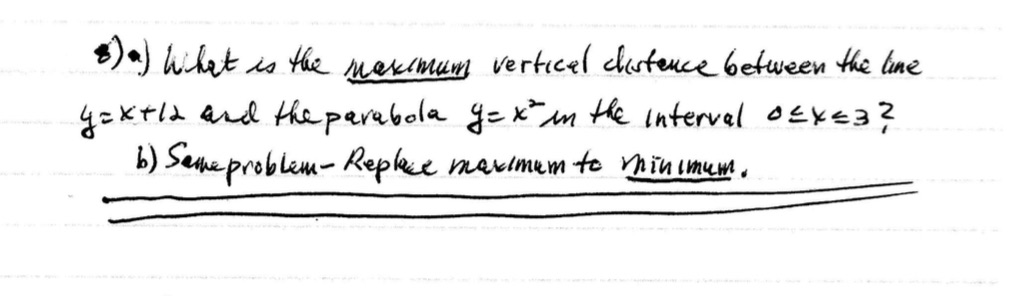 8) a) What is the maximum vertical distance between the line
y = x+12 and the parabola y = x² in the interval 0 ≤ x ≤ 3?
b) Same problem - Replace maximum to minimum.